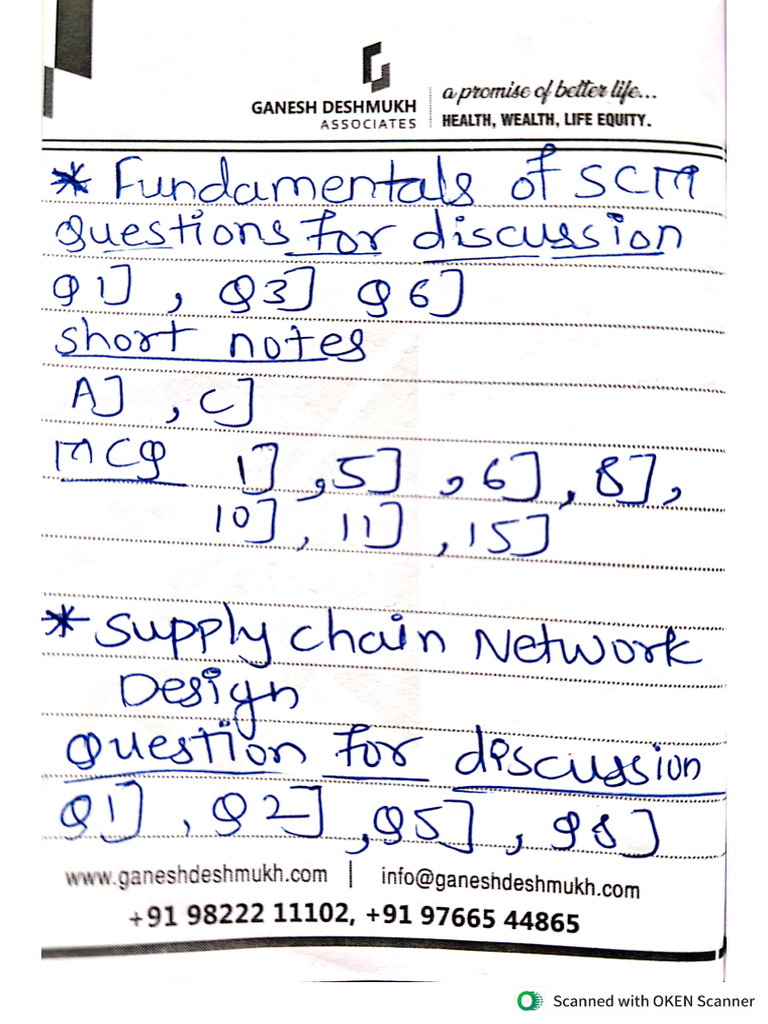 GANESH DESHMUKH
ASSOCIATES
a promise of better life...
HEALTH, WEALTH, LIFE EQUITY.
* Fundamentals of SCM
Questions for discussion
Q1] , Q3] Q6]
short notes
A] , C]
MCQ 1] , 5] , 6] , 8] ,
10] , 11] , 15]
* Supply chain Network
Design
Question for discussion
Q1] , Q2] , Q5] , Q8]
www.ganeshdeshmukh.com | info@ganeshdeshmukh.com
+91 98222 11102, +91 97665 44865
Scanned with OKEN Scanner